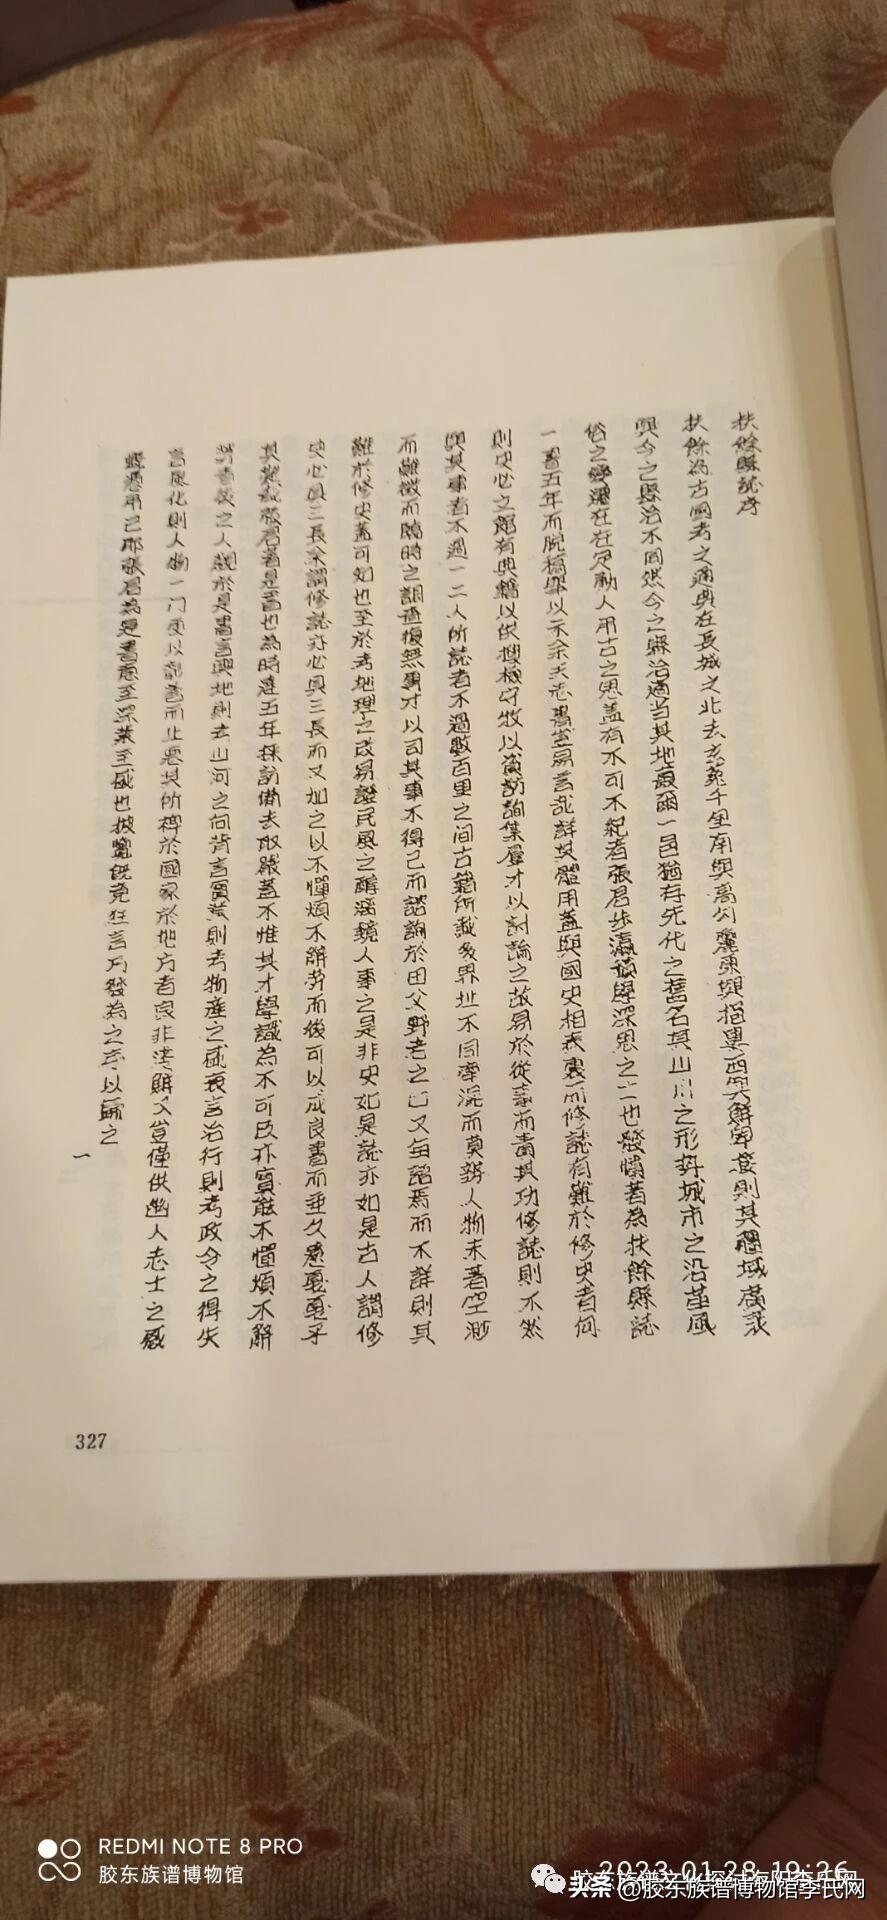 扶餘縣誌序
扶餘為古國考之通典在長城之北去玄菟千里南與高句麗東與挹婁西與鮮卑接則其疆域廣袤
與今之縣治不同然今之縣治適當其地蕞爾一邑猶存先代之舊名其山川之形勢城市之沿革風
俗之變遷在在足動人弔古之思蓋有不可不紀者張君步瀛積學深思之士也發憤著為扶餘縣誌
一書五年而脫稿舉以示余夫志書豈易言哉詳其體用蓋與國史相表裏而修誌有難於修史者何
則史必文館有典籍以供搜檢守牧以資訪詢集羣才以討論之故易於從事而責其功修誌則不然
與其事者不過一二人所誌者不過數百里之間古籍所載多界址不同牽混而莫辨人物未著空渺
而難徵而臨時之調查復無專才以司其事不得已而諮詢於田父野老之口又每語焉而不詳則其
難於修史蓋可知也至於考地理之改易證民風之醇澆鏡人事之是非史如是誌亦如是古人謂修
史必具三長余謂修誌亦必具三長而又加之以不憚煩不辭勞而後可以成良書而垂久遠戛戛乎
其難哉張君著是書也為時達五年採訪備去取嚴蓋不惟其才學識為不可及亦實能不憚煩不辭
勞者後之人觀於是書言輿地則去山河之向背言實業則考物產之盛衰言治行則考政令之得失
言風化則人物一门更以記言而止要其所裨於國家於地方者良非淺鮮又豈僅供幽人志士之感
慨憑弔已耶張君為是書意至深業至盛也披覽既竟狂言乃發為之序以歸之
一
327
REDMI NOTE 8 PRO
胶东族谱博物馆
2023.01.28 19:26
头条 @胶东族谱博物馆李氏网